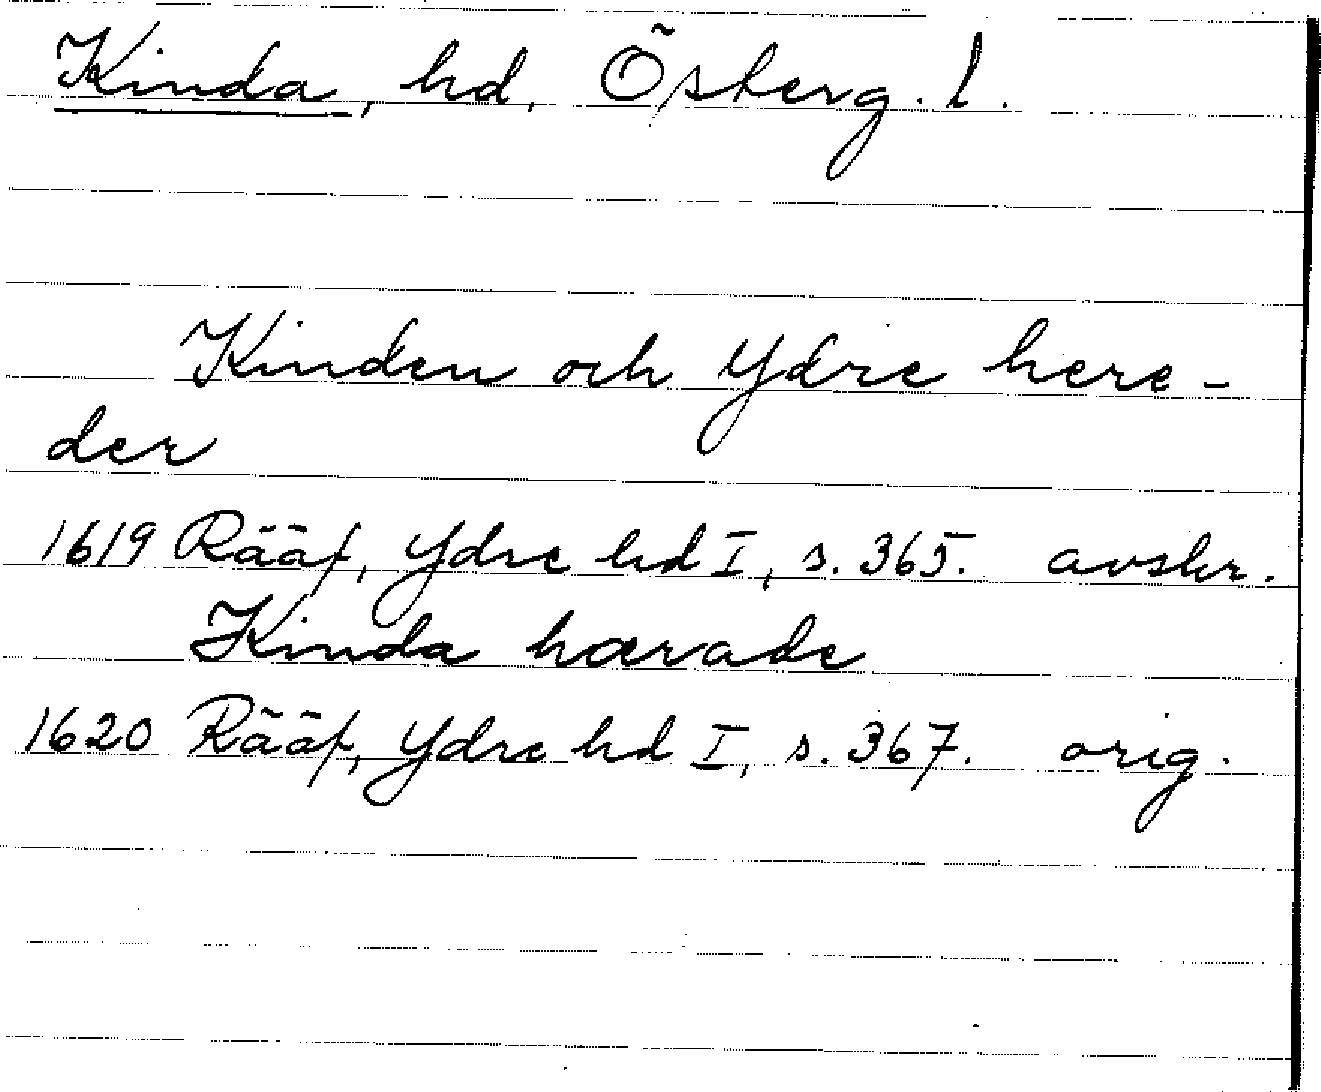 Kinda, hd, Östberg. l.
Kinden och Ydre here-
der
1619 Rääf, Ydre hd I, s. 365. avskr.
Kinda hærade
1620 Rääf, Ydre hd I, s. 367. orig.